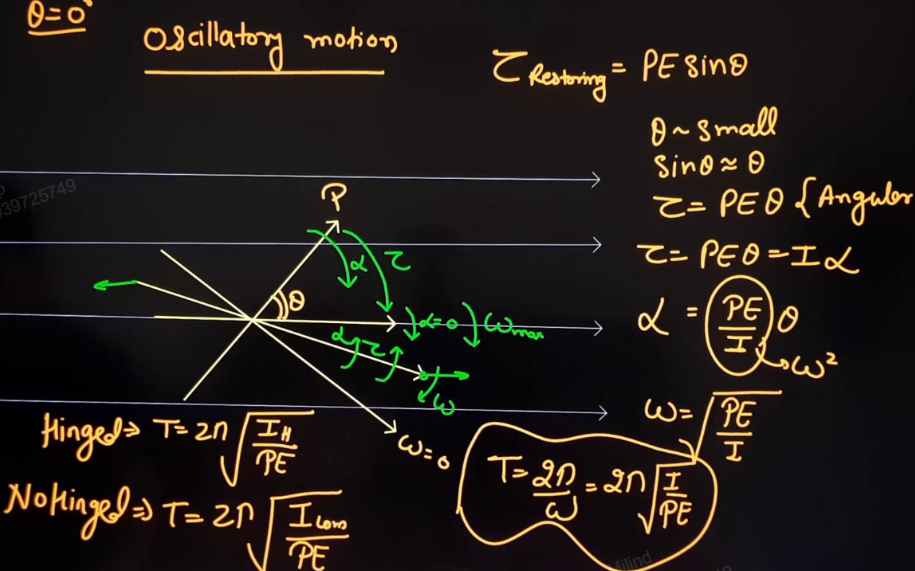 θ=0°
Oscillatory motion
τ Restoring = PE sinθ
θ ~ small
sinθ ≈ θ
τ = PEθ {Angular
τ = PEθ = Iα
α = (PE/I)θ
→ω²
ω = √(PE/I)
T = 2π/ω = 2π√(I/PE)
39725749
P
α
τ
θ
α=0
ωmax
α
τ
ω
ω=0
Hinged ⇒ T = 2π√(I_H/PE)
No Hinged ⇒ T = 2π√(I_com/PE)
Milind